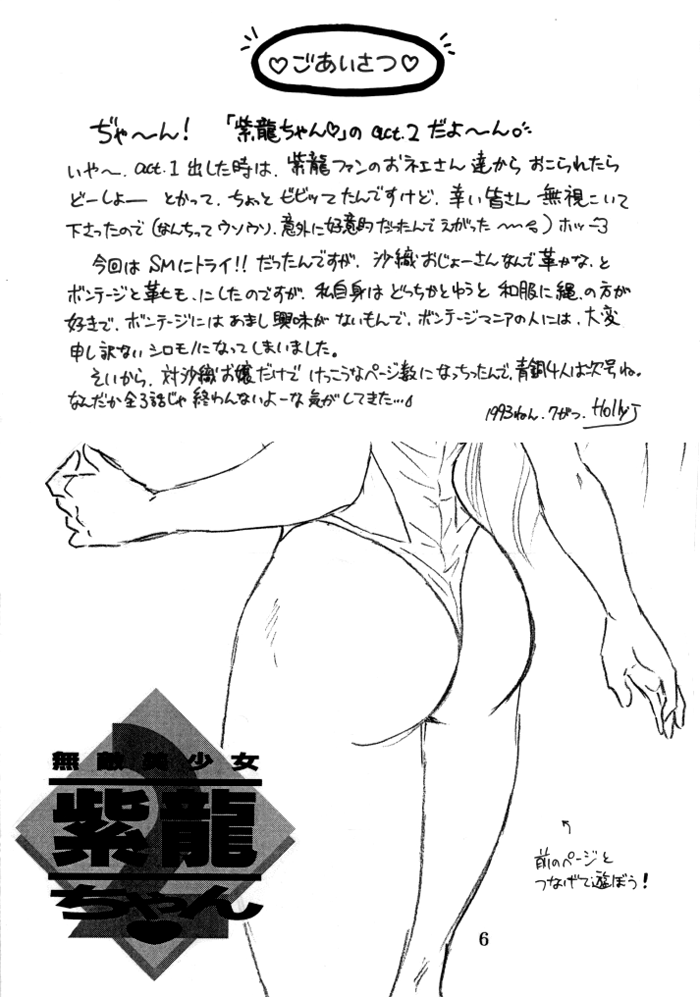 ♡ごあいさつ♡
ぢゃ〜ん! 「紫龍ちゃん♡」の act.2 だよ〜ん。
いや〜、act.1 出した時は、紫龍ファンのおネエさん達から おこられたら
どーしよー とかって、ちょっと ビビッてたんですけど、幸い皆さん 無視こいて
下さったので(なんちってウソウソ、意外に好意的だったんでえがった〜〜)ホッ〜
今回は SMにトライ!! だったんですが、沙織おじょーさんなんで革かな、と
ボンテージと革モも、にしたのですが、私自身は どっちかとゆうと 和服に縄、の方が
好きで、ボンテージにはあまし興味が ないもんで、ボンテージマニアの人には、大変
申し訳ない シロモノになってしまいました。
そいから、対沙織お嬢だけで けっこうなページ数になっちったんで、青銅4人は次号ね。
なんだか全3話じゃ 終わんないよーな気がしてきた…
1993ねん.7がつ. HollyJ
無敵美少女
紫龍
ちゃん
2
前のページと
つなげて遊ぼう!
6